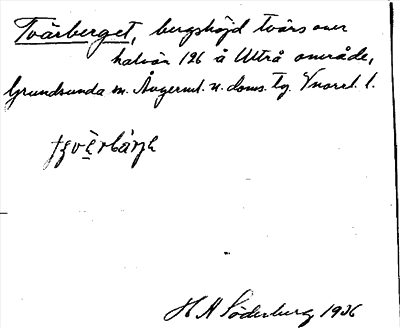 Tvärberget, bergshöjd tvärs över
halvön 126 å Ultrå område,
Grundsunda sn. Ångerml. n. doms. tg.
H A Söderberg 1936